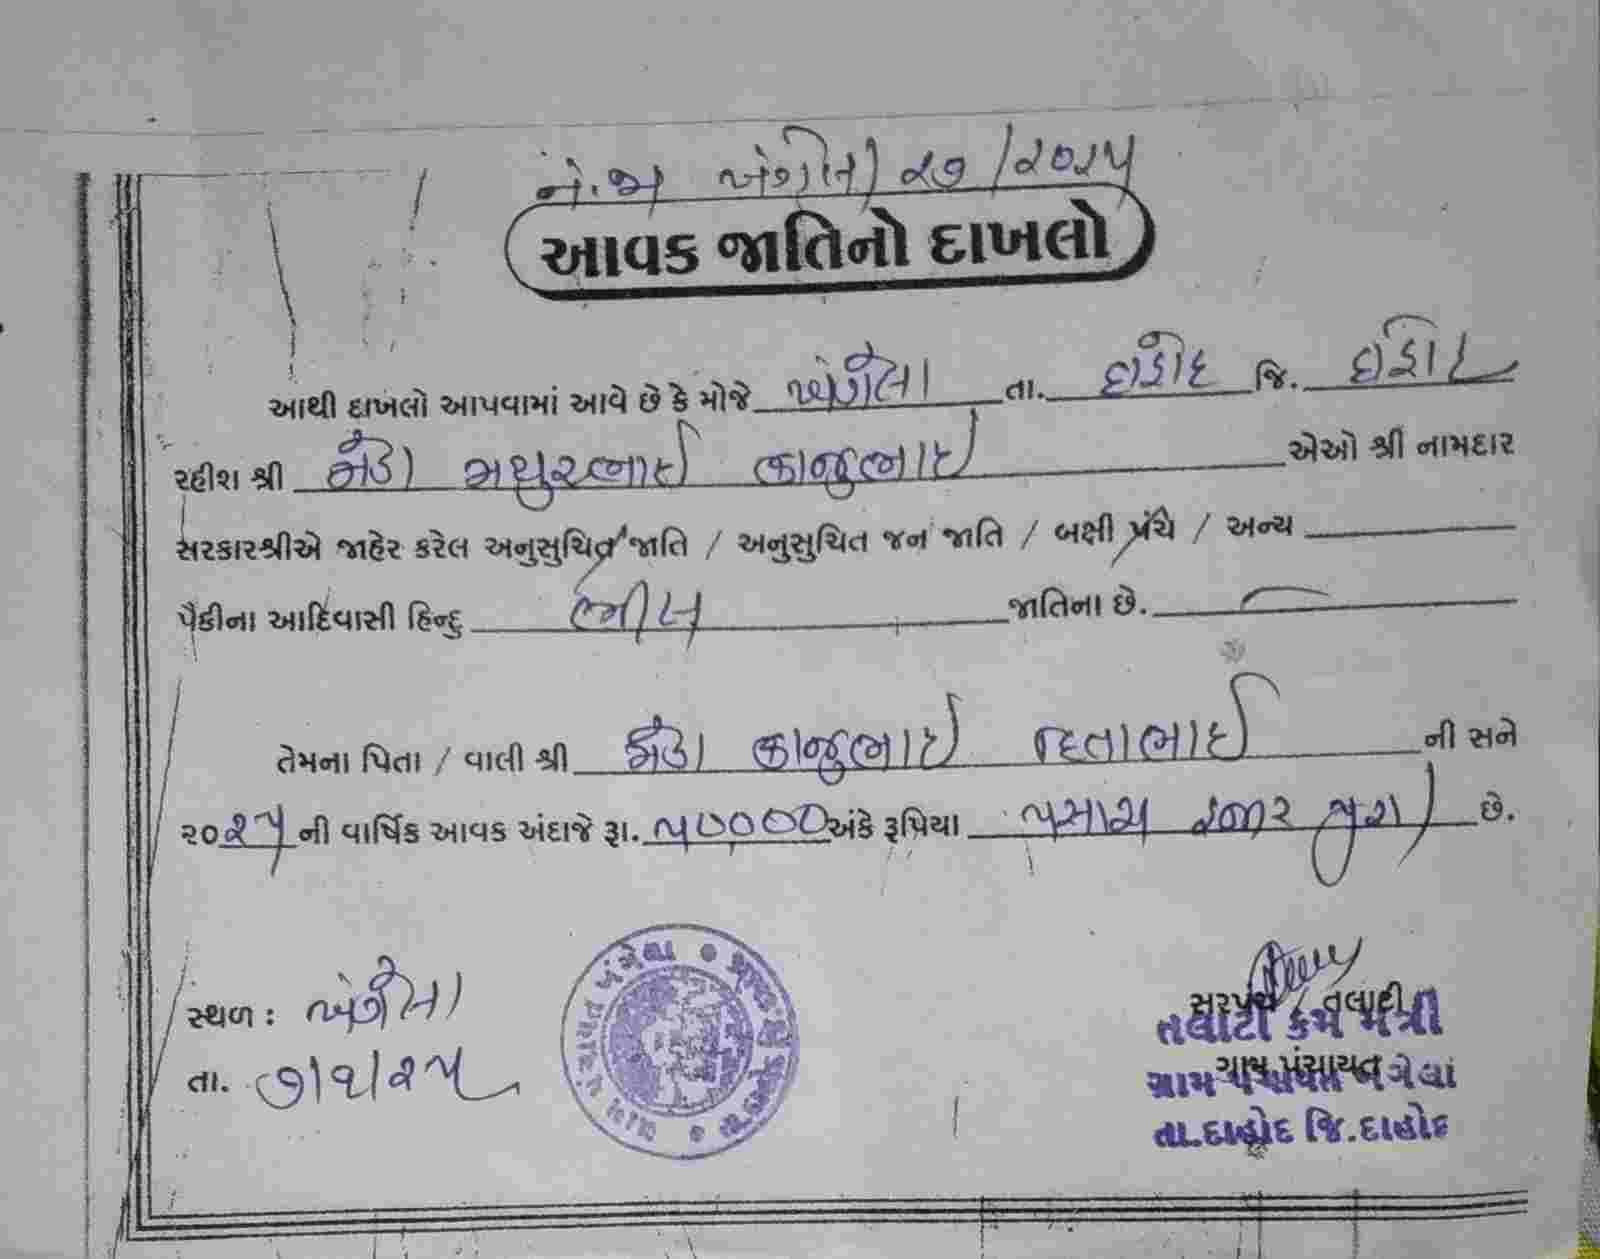 ને.જા ખંગેલા 27/2025
આવક જાતિનો દાખલો
આથી દાખલો આપવામાં આવે છે કે મોજે ખંગેલા તા. દાહોદ જિ. દાહોદ
રહીશ શ્રી મેડા મયુરભાઈ કાજુભાઈ એઓ શ્રી નામદાર
સરકારશ્રીએ જાહેર કરેલ અનુસુચિત જાતિ / અનુસુચિત જન જાતિ / બક્ષી પ્રંચે / અન્ય
પૈકીના આદિવાસી હિન્દુ ભીલ જાતિના છે.
તેમના પિતા / વાલી શ્રી મેડા કાજુભાઈ દિતાભાઈ ની સને
૨૦૨૫ ની વાર્ષિક આવક અંદાજે રૂા. ૫૦૦૦૦ અંકે રૂપિયા પચાસ હજાર પુરા છે.
સ્થળ : ખંગેલા
તા. ૭/૧/૨૫
સરપંચ / તલાટી
તલાટી કમ મંત્રી
ગ્રામ પંચાયત
ગ્રામ પંચાયત ખંગેલા
તા.દાહોદ જિ.દાહોદ
ગ્રામ પંચાયત ખંગેલા